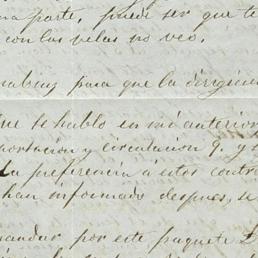 na parte, puede ser que te
con las velas no veo.
para que la dirigiere
que se habló en mi anterior
portación y circulación q. y
La preferencia á estos contra
han informado despues, se
mandar por este paquete